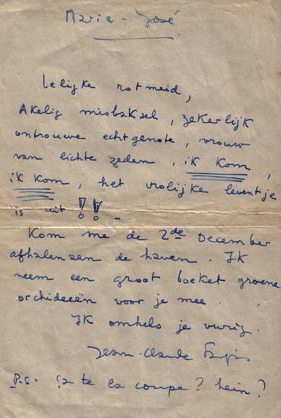 Marie-José
Lelijke rotmeid,
Akelig misbaksel, zekerlijk
ontrouwe echtgenote, vrouw
van lichte zeden, ik kom,
ik kom, het vrolijke leventje
is uit !! -
Kom me de 2de December
afhalen aan de haven. Ik
neem een groot boeket groene
orchideeën voor je mee.
Ik omhels je vurig.
Jean-Claude
P.S. ça te la coupe ? hein ?